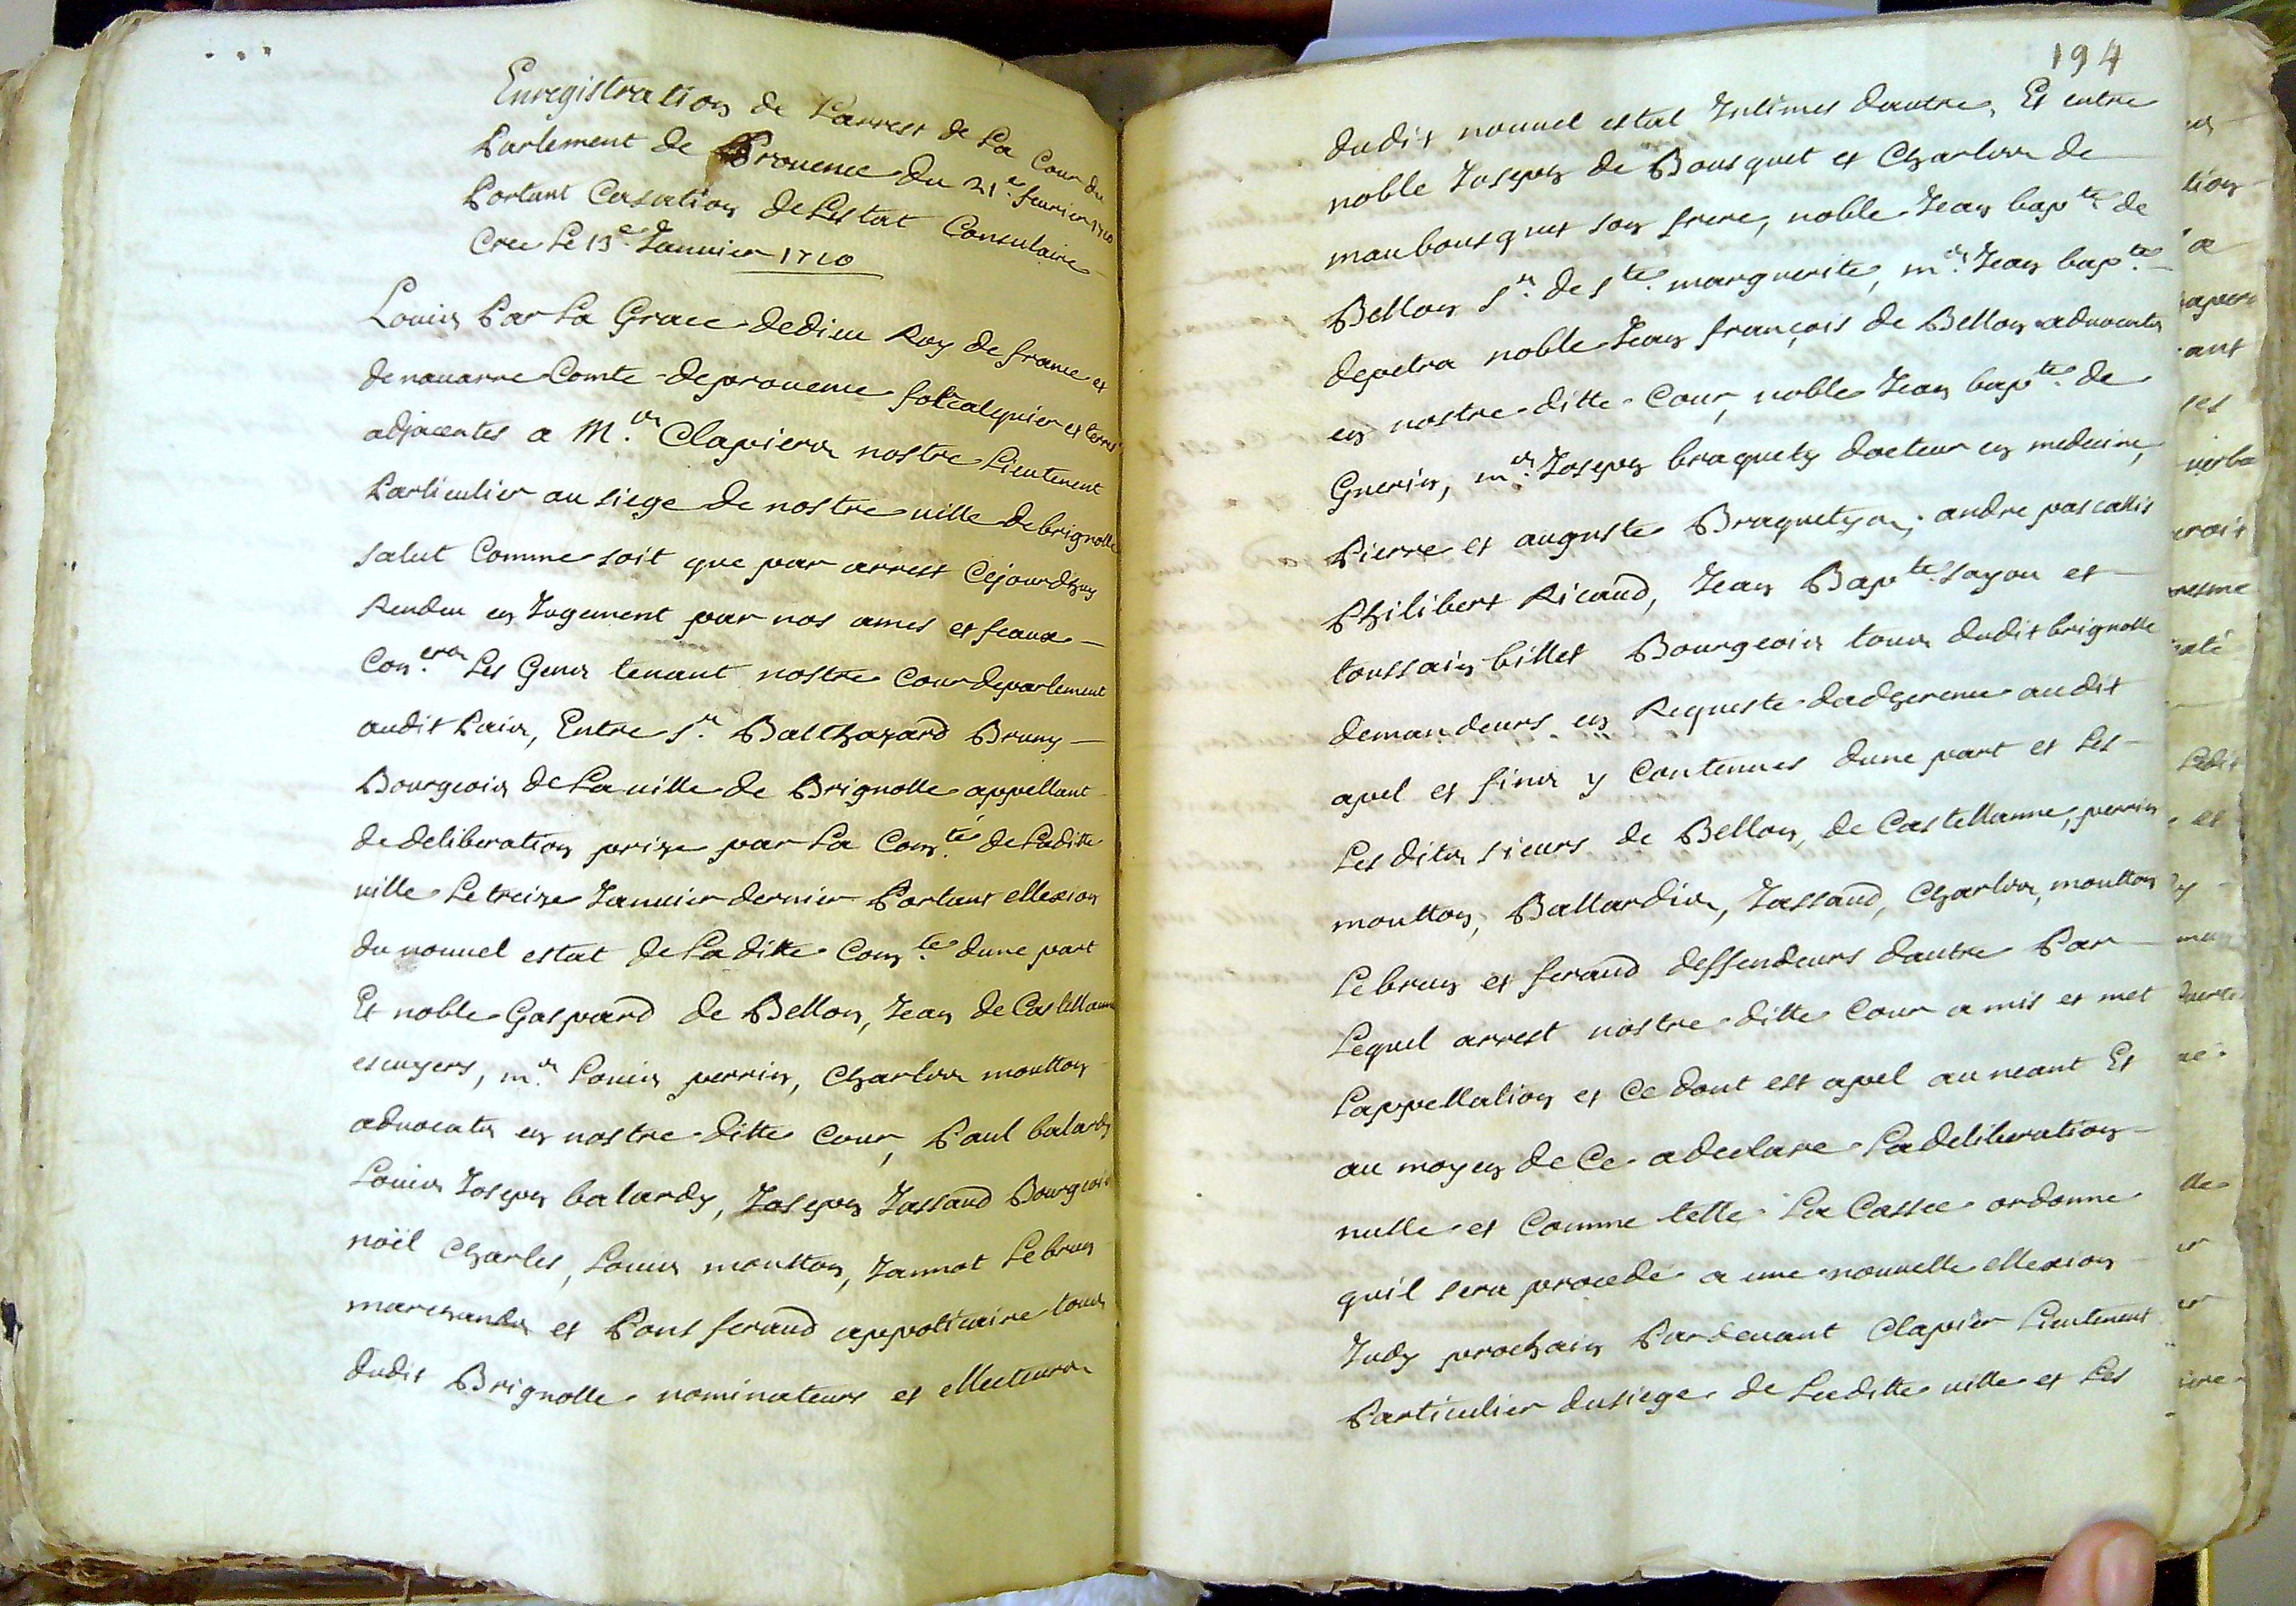 Enregistration de Larrest de La Cour du
Parlement de Prouence du 21e. feurier 1710
Portant Casation de Lestat Consulaire
Cree Le 13e. Januier 1710
Louis Par La Grace de dieu Roy de france et
de nauarre Comte de prouence forcalquier et terres
adjacentes a Mr. Clapiers nostre Lieutenent
Particulier au siege de nostre uille de brignolle
salut Comme soit que par arrest Cejourdhuy
Rendu en Jugement par nos ames et feaux
Coners. Les Gens tenant nostre Cour de parlement
audit Paix, Entre sr. Balthazard Bruny
Bourgeois de La uille de Brignolle appellant
de deliberation prize par La Comté. de Laditte
uille Le treize Januier dernier Portant ellexion
du nouuel estat de La ditte Comte. dune part
Et noble Gaspard de Bellon, Jean de Castellanne
escuyers, mr. Louis perrin, Charles moutton
aduocats en nostre ditte Cour, Paul balardy
Louis Joseph balardy, Joseph Jassaud Bourgeois
noël Charles, Louis moutton, Jannot Lebrun
marchands et Pons feraud appoticaire tous
dudit Brignolle nominateurs et ellecteurs
194
dudit nouuel estat Intimes dautre, Et entre
noble Joseph de Bousquet et Charles de
maubousquet son frere, noble Jean bapte. de
Bellon sr. de ste. marguerite, mr. Jean bapte.
depetra noble Jean françois de Bellon aduocats
en nostre ditte Cour, noble Jean bapte. de
Guerin, mr. Joseph braquety docteur en medecine,
Pierre et auguste Braquetys, andre pascallis
Philibert Ricaud, Jean Bapte. fayou et
toussain billet Bourgeois tous dudit brignolle
demandeurs en Requeste dadherence audit
apel et fins y Contenues dune part et Les
Les dits sieurs de Bellon, de Castellanne, perrin
moutton, Ballardis, Jassaud, Charles, moutton
Lebrun et feraud deffendeurs dautre Par
Lequel arrest nostre ditte Cour a mis et met
Lappellation et Ce dont est apel au neant Et
au moyen de Ce a declare La deliberation
nulle et Comme telle La Cassée ordonne
quil sera procedé a une nouuelle ellexion
Judy prochain Pardeuant Clapier Lieutenent
Particulier du siege de Laditte uille et Les